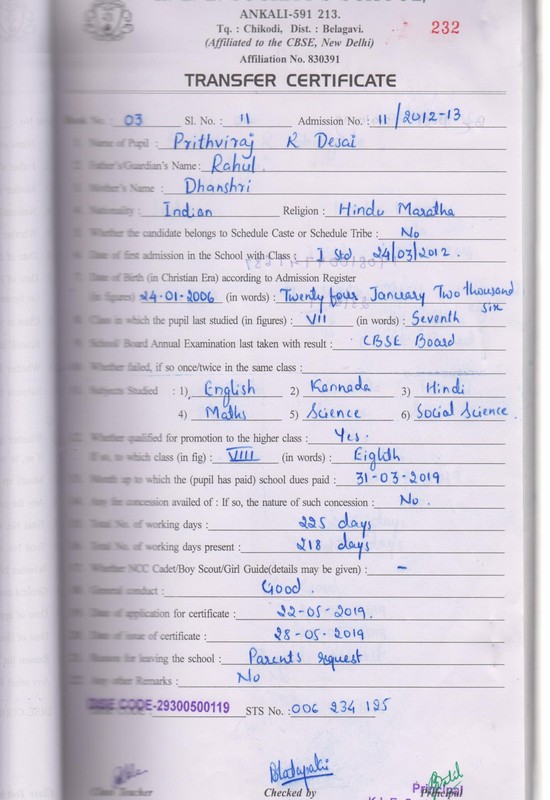 ANKALI-591 213.
Tq. : Chikodi, Dist. : Belagavi.
(Affiliated to the CBSE, New Delhi)
232
Affiliation No. 830391
TRANSFER CERTIFICATE
No. : 03 Sl. No. : 11 Admission No. : 11/2012-13
1. Name of Pupil : Prithviraj R Desai
2. Father's/Guardian's Name : Rahul.
3. Mother's Name : Dhanshri
4. Nationality : Indian Religion : Hindu Maratha
5. Whether the candidate belongs to Schedule Caste or Schedule Tribe : No
6. Date of first admission in the School with Class : I Std 24/03/2012.
7. Date of Birth (in Christian Era) according to Admission Register
(in figures) 24-01-2006 (in words) : Twenty four January Two thousand six
8. Class in which the pupil last studied (in figures) : VII (in words) : Seventh
9. School Board Annual Examination last taken with result : CBSE Board
10. Whether failed, if so once/twice in the same class :
11. Subjects Studied : 1) English 2) Kannada 3) Hindi
4) Maths 5) Science 6) Social Science.
12. Whether qualified for promotion to the higher class : Yes.
If so, to which class (in fig) : VIII (in words) : Eighth
13. Month up to which the (pupil has paid) school dues paid : 31-03-2019
14. Any fee concession availed of : If so, the nature of such concession : No.
15. Total No. of working days : 225 days
16. Total No. of working days present : 218 days
17. Whether NCC Cadet/Boy Scout/Girl Guide(details may be given) : -
18. General conduct : Good.
19. Date of application for certificate : 22-05-2019.
20. Date of issue of certificate : 28-05-2019
21. Reason for leaving the school : Parents request
22. Any other Remarks : No
DISE CODE-29300500119 STS No. : 006 234 195
Class Teacher Checked by Principal
Principal